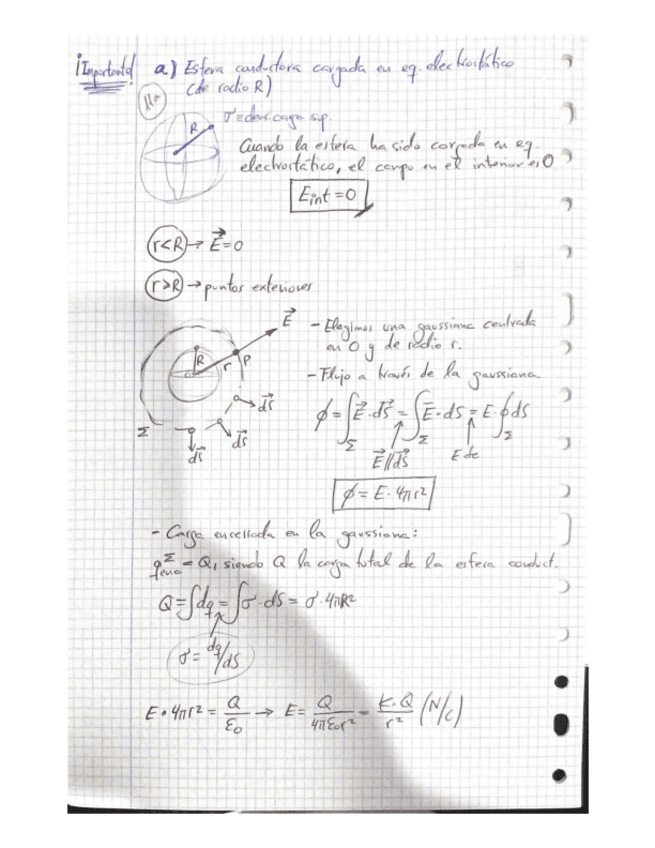 ¡Importante! a) Esfera conductora cargada en eq. electrostático
(de radio R)
R
σ = den. carga sup.
Cuando la esfera ha sido cargada en eq.
electrostático, el campo en el interior es 0
Eint = 0
r<R → E⃗ = 0
r>R → puntos exteriores
E⃗
R
r
P
dS⃗
dS⃗
dS⃗
Σ
- Elegimos una gaussiana centrada
en O y de radio r.
- Flujo a través de la gaussiana.
ϕ = ∫Σ E⃗ · dS⃗ = ∫Σ E · dS = E · ∮Σ dS
E⃗ // dS⃗
E cte
ϕ = E · 4πr²
- Carga encerrada en la gaussiana:
qΣ = Q, siendo Q la carga total de la esfera conduct.
Q = ∫dq = ∫σ · dS = σ · 4πR²
σ = dq/dS
E · 4πr² = Q/ε₀ → E = Q/4πε₀r² = K · Q/r² (N/C)